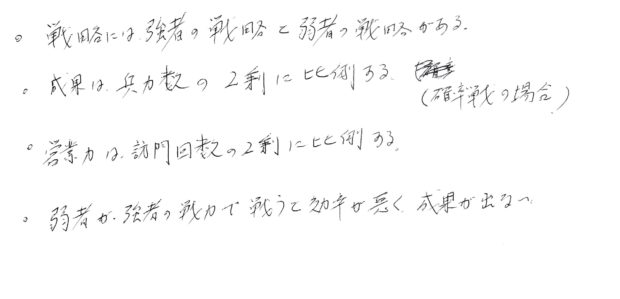 。戦略には、強者の戦略と弱者の戦略がある。
。成果は、兵力数の2剰に比例する。
(確率戦の場合)
。営業力は、訪問回数の2剰に比例する。
。弱者が、強者の戦力で戦うと効率が悪く、成果が出ない